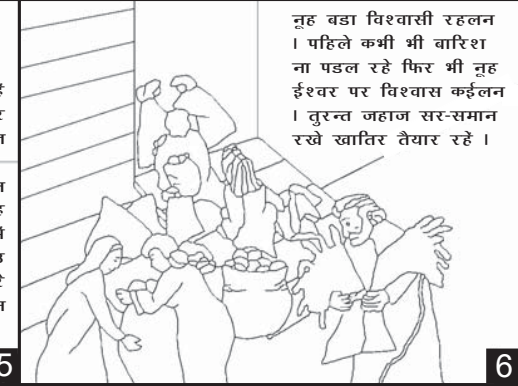 नूह बडा विश्वासी रहलन
। पहिले कभी भी बारिश
ना पडल रहे फिर भी नूह
ईश्वर पर विश्वास कईलन
। तुरन्त जहाज सर-समान
रखे खातिर तैयार रहें ।
5
6